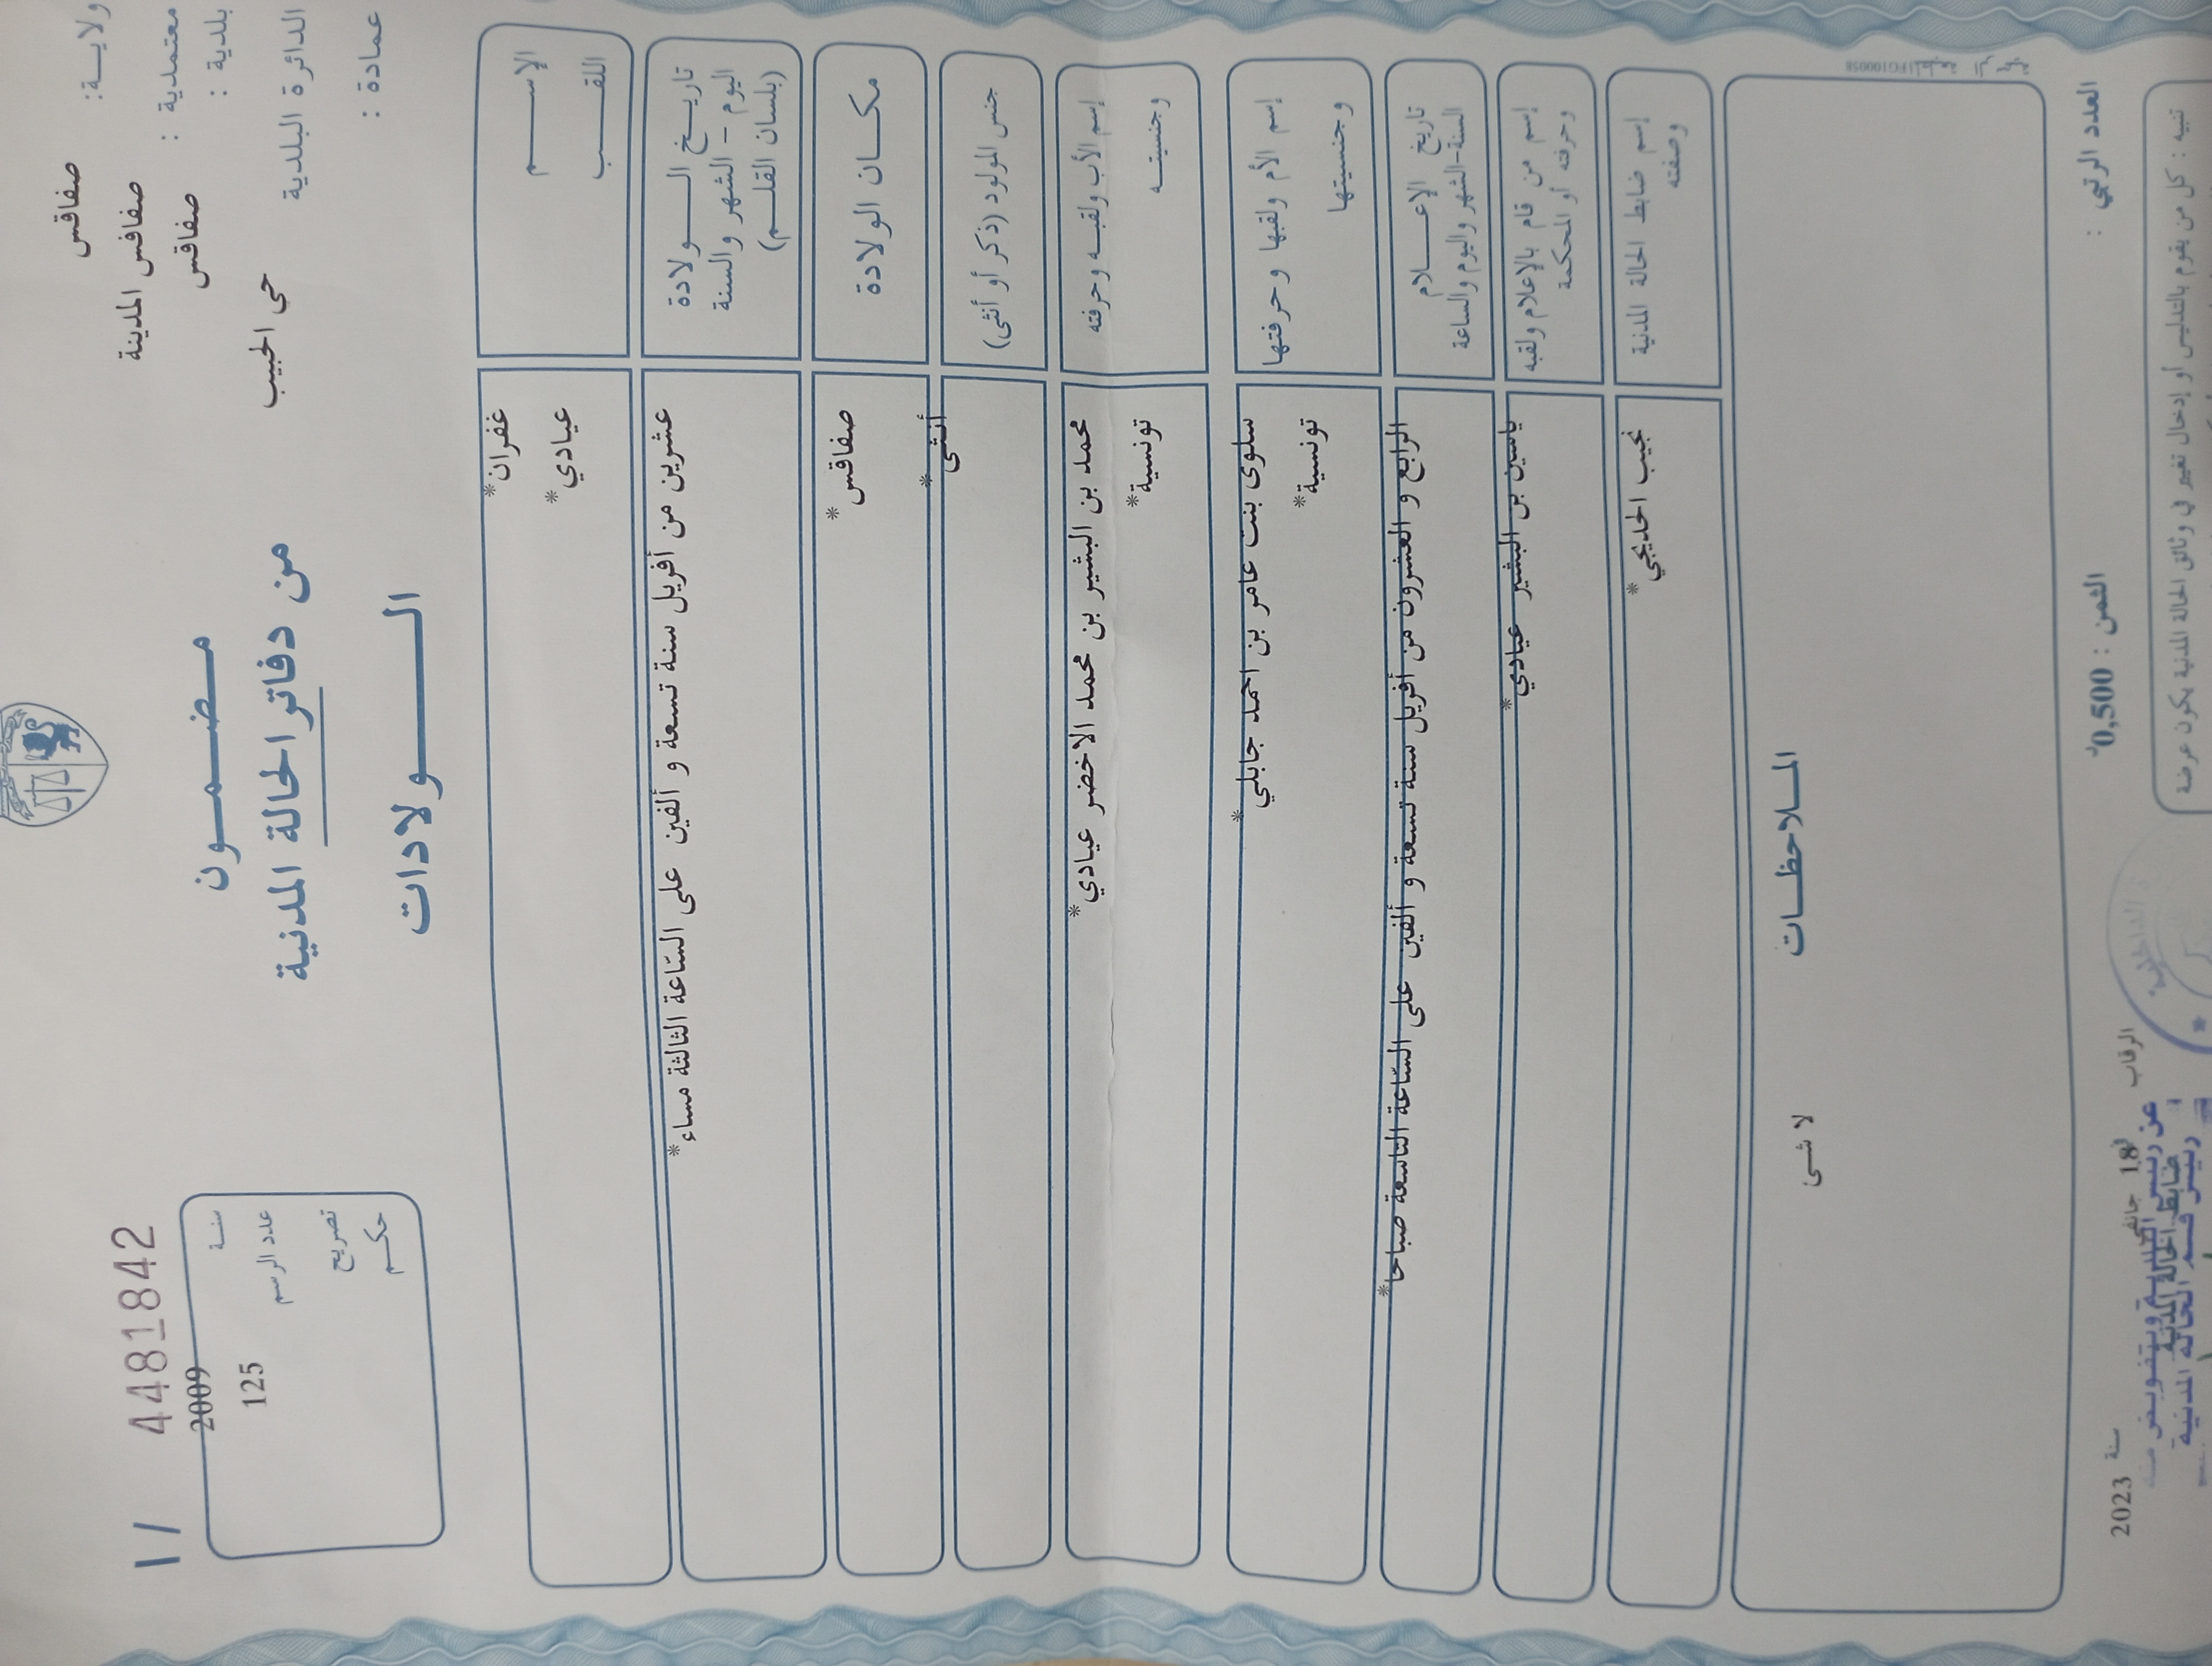 ولايــة: صفاقس
معتمدية : صفاقس المدينة
بلدية : صفاقس
الدائرة البلدية حي الحبيب
عمادة :
مضمــون
من دفاتر الحالة المدنية
الــولادات
11 4481842
سنــة 2009
عدد الرسم 125
تصريح
حكــم
الإســـم غفران*
اللقـــب عيادي*
تاريــخ الـــولادة عشرين من أفريل سنة تسعة و ألفين على السّاعة الثالثة مساء*
اليوم - الشهر والسنة
(بلسان القلــم)
مكــان الولادة صفاقس*
جنس المولود (ذكر أو أنثى) أنثى*
إسم الأب ولقبـه وحرفته محمد بن البشير بن محمد الاخضر عيادي*
وجنسيتــه تونسية*
إسم الأم ولقبها وحرفتها سلوى بنت عامر بن احمد جابلي*
وجنسيتها تونسية*
تاريخ الإعـــلام الرابع و العشرون من أفريل سنة تسعة و ألفين على السّاعة التاسعة صباحا*
السنة-الشهر واليوم والساعة
إسم من قام بالإعلام ولقبه ياسين بن البشير عيادي*
وحرفته أو المحكمة
إسم ضابط الحالة المدنية نجيب الحديجي*
وصفته
الملاحظــات
لا شى
العدد الرتبي :
الثمن : 0,500د
الرقاب 18 جانفي سنة 2023
ضابط الحالة المدنية
رئيس قسم الحالة المدنية
تنبيه : كل من يقوم بالتدليس أو إدخال تغيير في وثائق الحالة المدنية يكون عرضة